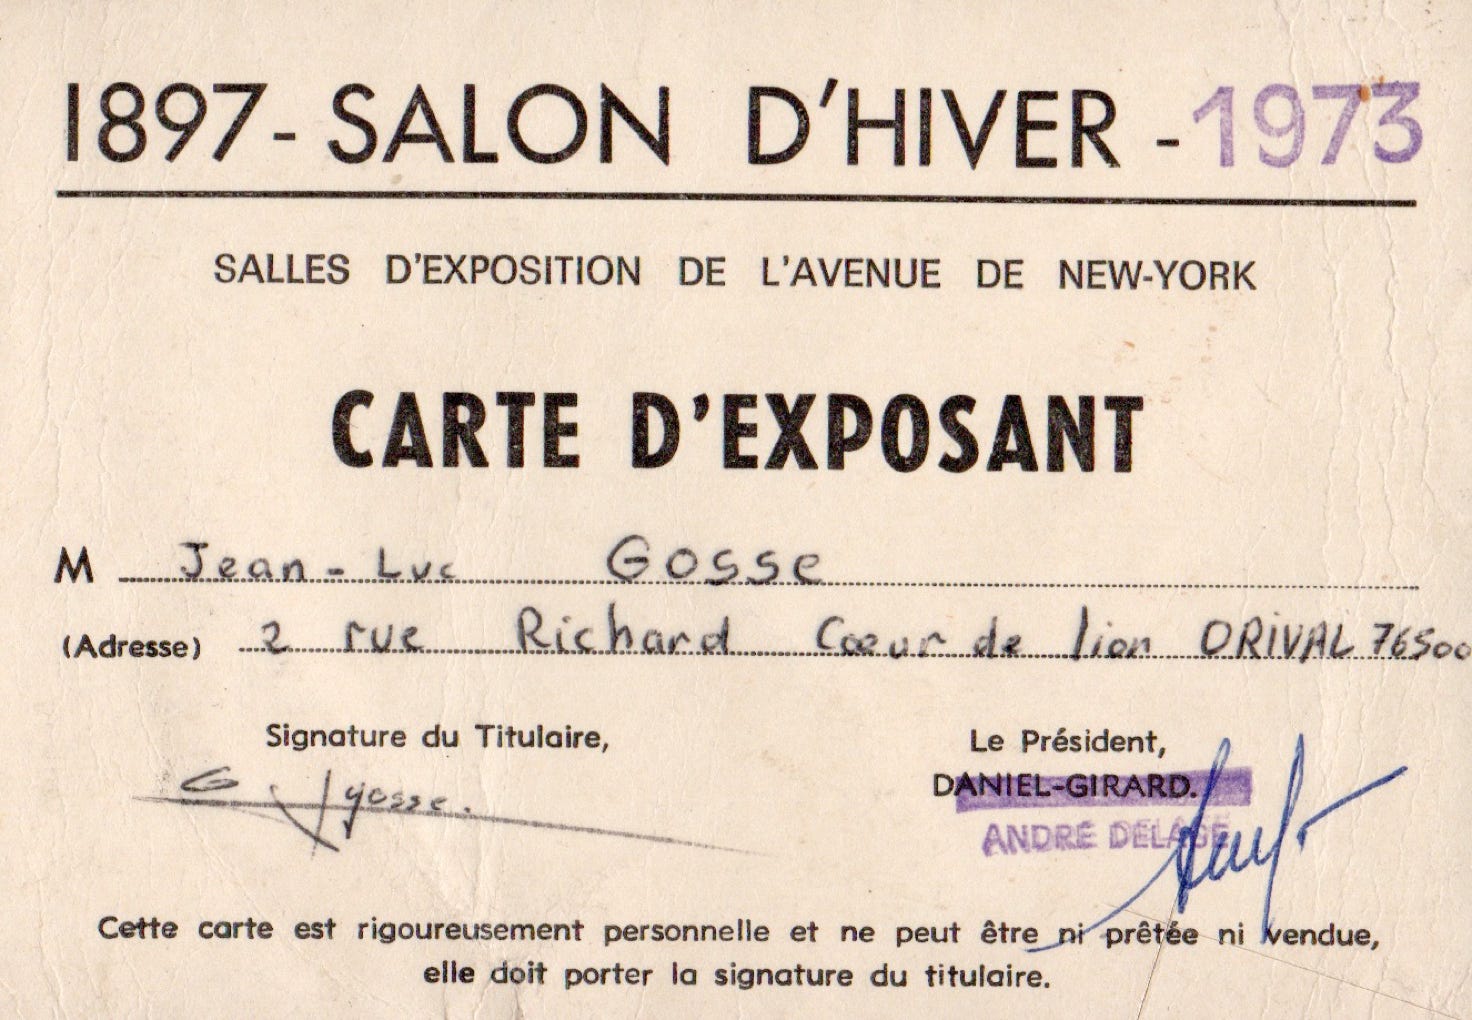 1897 - SALON D'HIVER - 1973
SALLES D'EXPOSITION DE L'AVENUE DE NEW-YORK
CARTE D'EXPOSANT
M Jean-Luc Gosse
(Adresse) 2 rue Richard Cœur de lion ORIVAL 76500
Signature du Titulaire,
Le Président,
gosse.
DANIEL-GIRARD.
ANDRÉ DELAGE
Cette carte est rigoureusement personnelle et ne peut être ni prêtée ni vendue,
elle doit porter la signature du titulaire.